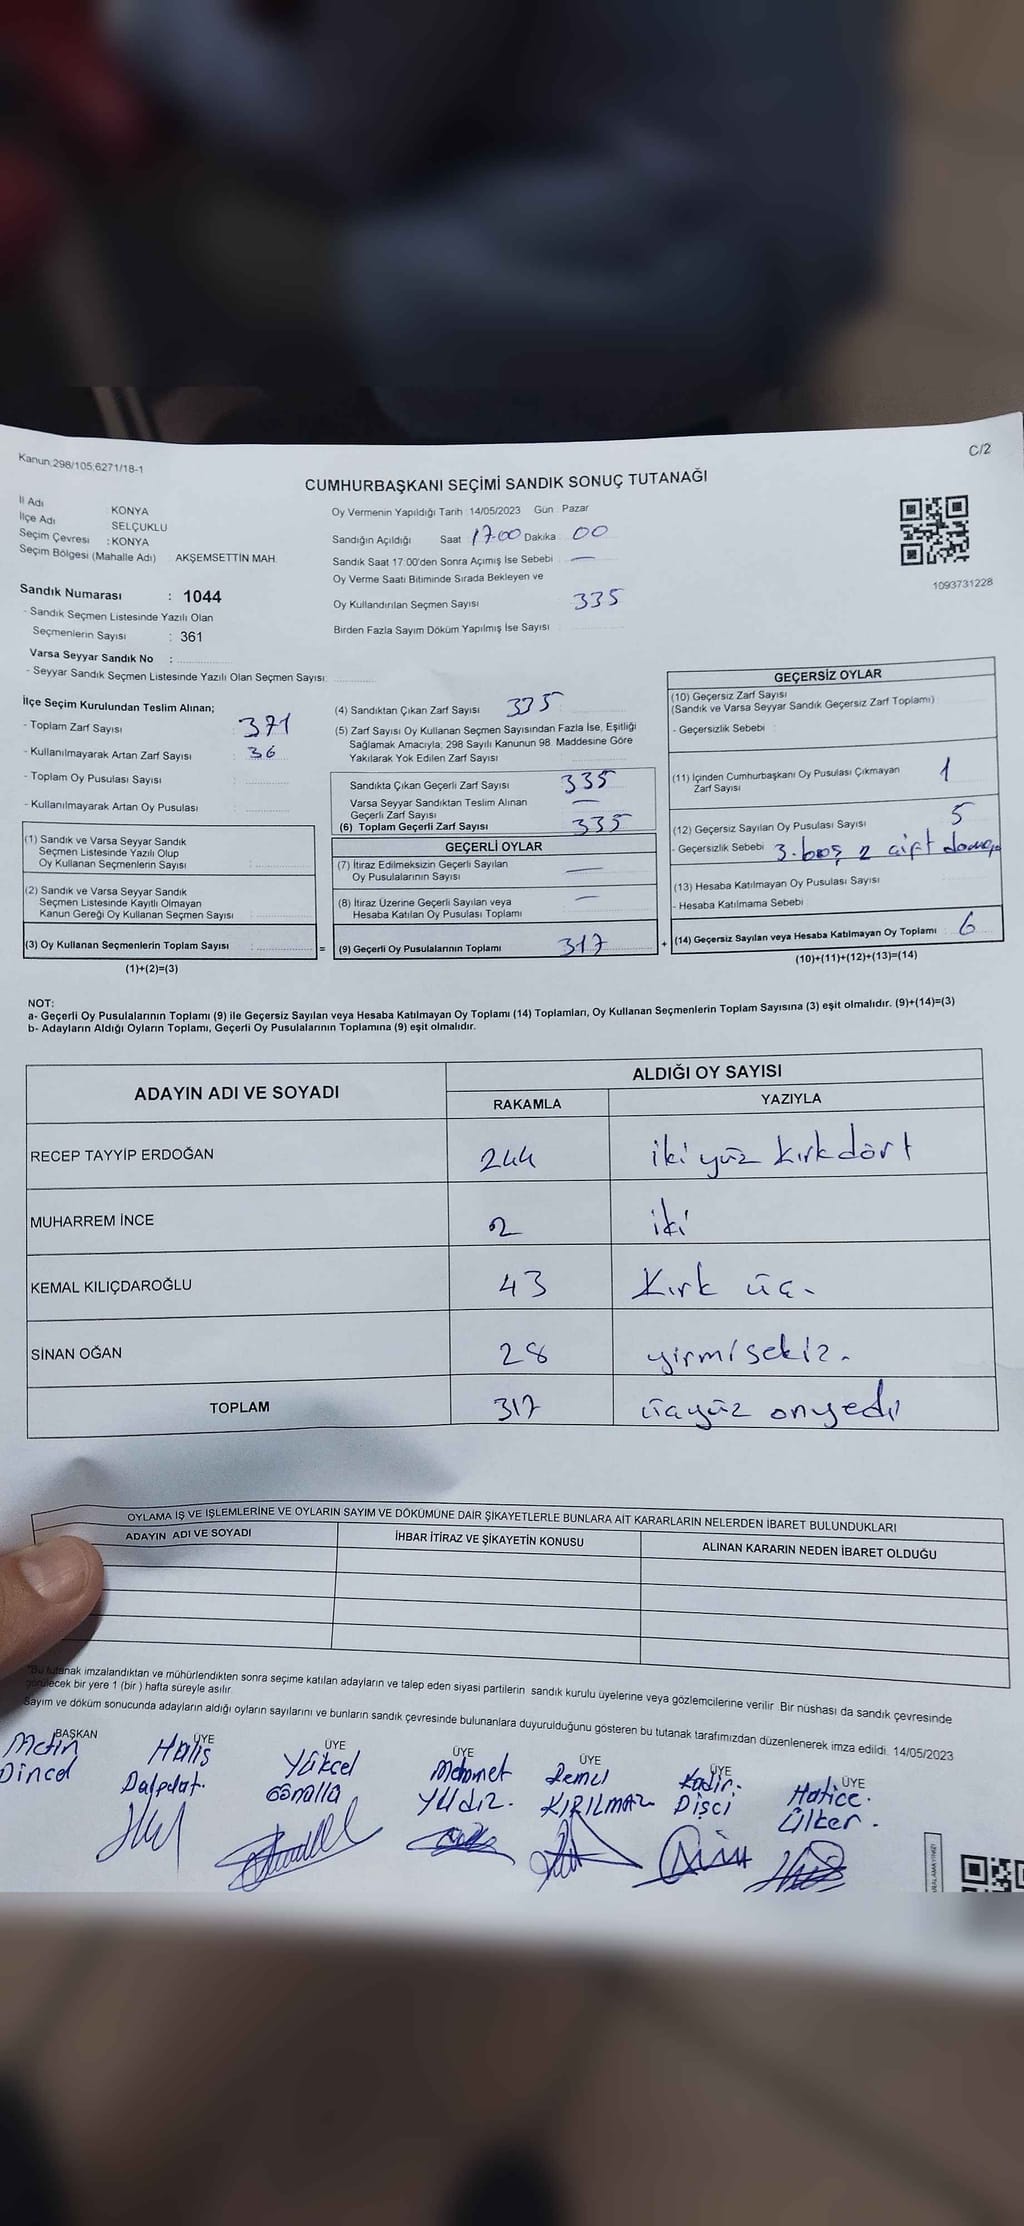 Kanun.298/105,6271/18-1
C/2
CUMHURBAŞKANI SEÇİMİ SANDIK SONUÇ TUTANAĞI
İl Adı : KONYA
İlçe Adı SELÇUKLU
Seçim Çevresi : KONYA
Seçim Bölgesi (Mahalle Adı) AKŞEMSETTİN MAH.
Sandık Numarası : 1044
- Sandık Seçmen Listesinde Yazılı Olan
Seçmenlerin Sayısı : 361
Varsa Seyyar Sandık No :
- Seyyar Sandık Seçmen Listesinde Yazılı Olan Seçmen Sayısı:
Oy Vermenin Yapıldığı Tarih 14/05/2023 Gün Pazar
Sandığın Açıldığı Saat 17:00 Dakika 00
Sandık Saat 17:00'den Sonra Açımış İse Sebebi —
Oy Verme Saati Bitiminde Sırada Bekleyen ve
Oy Kullandırılan Seçmen Sayısı 335
Birden Fazla Sayım Döküm Yapılmış İse Sayısı
1093731228
İlçe Seçim Kurulundan Teslim Alınan;
- Toplam Zarf Sayısı 371
- Kullanılmayarak Artan Zarf Sayısı 36
- Toplam Oy Pusulası Sayısı
- Kullanılmayarak Artan Oy Pusulası
(1) Sandık ve Varsa Seyyar Sandık
Seçmen Listesinde Yazılı Olup
Oy Kullanan Seçmenlerin Sayısı
(2) Sandık ve Varsa Seyyar Sandık
Seçmen Listesinde Kayıtlı Olmayan
Kanun Gereği Oy Kullanan Seçmen Sayısı
(3) Oy Kullanan Seçmenlerin Toplam Sayısı :
(1)+(2)=(3)
(4) Sandıktan Çıkan Zarf Sayısı 335
(5) Zarf Sayısı Oy Kullanan Seçmen Sayısından Fazla İse, Eşitliği
Sağlamak Amacıyla; 298 Sayılı Kanunun 98. Maddesine Göre
Yakılarak Yok Edilen Zarf Sayısı
Sandıkta Çıkan Geçerli Zarf Sayısı 335
Varsa Seyyar Sandıktan Teslim Alınan
Geçerli Zarf Sayısı —
(6) Toplam Geçerli Zarf Sayısı 335
GEÇERLİ OYLAR
(7) İtiraz Edilmeksizin Geçerli Sayılan
Oy Pusulalarının Sayısı —
(8) İtiraz Üzerine Geçerli Sayılan veya
Hesaba Katılan Oy Pusulası Toplamı —
= (9) Geçerli Oy Pusulalarının Toplamı 317
GEÇERSİZ OYLAR
(10) Geçersiz Zarf Sayısı
(Sandık ve Varsa Seyyar Sandık Geçersiz Zarf Toplamı)
- Geçersizlik Sebebi
(11) İçinden Cumhurbaşkanı Oy Pusulası Çıkmayan
Zarf Sayısı 1
(12) Geçersiz Sayılan Oy Pusulası Sayısı 5
- Geçersizlik Sebebi 3 boş 2 çift damga
(13) Hesaba Katılmayan Oy Pusulası Sayısı
- Hesaba Katılmama Sebebi
+ (14) Geçersiz Sayılan veya Hesaba Katılmayan Oy Toplamı 6
(10)+(11)+(12)+(13)=(14)
NOT:
a- Geçerli Oy Pusulalarının Toplamı (9) ile Geçersiz Sayılan veya Hesaba Katılmayan Oy Toplamı (14) Toplamları, Oy Kullanan Seçmenlerin Toplam Sayısına (3) eşit olmalıdır. (9)+(14)=(3)
b- Adayların Aldığı Oyların Toplamı, Geçerli Oy Pusulalarının Toplamına (9) eşit olmalıdır.
ADAYIN ADI VE SOYADI
ALDIĞI OY SAYISI
RAKAMLA YAZIYLA
RECEP TAYYİP ERDOĞAN 244 iki yüz kırkdört
MUHARREM İNCE 2 iki
KEMAL KILIÇDAROĞLU 43 Kırk üç.
SİNAN OĞAN 28 yirmisekiz.
TOPLAM 317 üçyüz onyedi
OYLAMA İŞ VE İŞLEMLERİNE VE OYLARIN SAYIM VE DÖKÜMÜNE DAİR ŞİKAYETLERLE BUNLARA AİT KARARLARIN NELERDEN İBARET BULUNDUKLARI
ADAYIN ADI VE SOYADI İHBAR İTİRAZ VE ŞİKAYETİN KONUSU ALINAN KARARIN NEDEN İBARET OLDUĞU
*Bu tutanak imzalandıktan ve mühürlendikten sonra seçime katılan adayların ve talep eden siyasi partilerin sandık kurulu üyelerine veya gözlemcilerine verilir. Bir nüshası da sandık çevresinde
görülecek bir yere 1 (bir) hafta süreyle asılır.
Sayım ve döküm sonucunda adayların aldığı oyların sayılarını ve bunların sandık çevresinde bulunanlara duyurulduğunu gösteren bu tutanak tarafımızdan düzenlenerek imza edildi. 14/05/2023
BAŞKAN ÜYE ÜYE ÜYE ÜYE ÜYE ÜYE
Metin Halis Yüksel Mehmet Remzi Kadir. Hatice.
Dincel Dalpolat. Yıldız. KIRILMAZ Dişci Ülker.